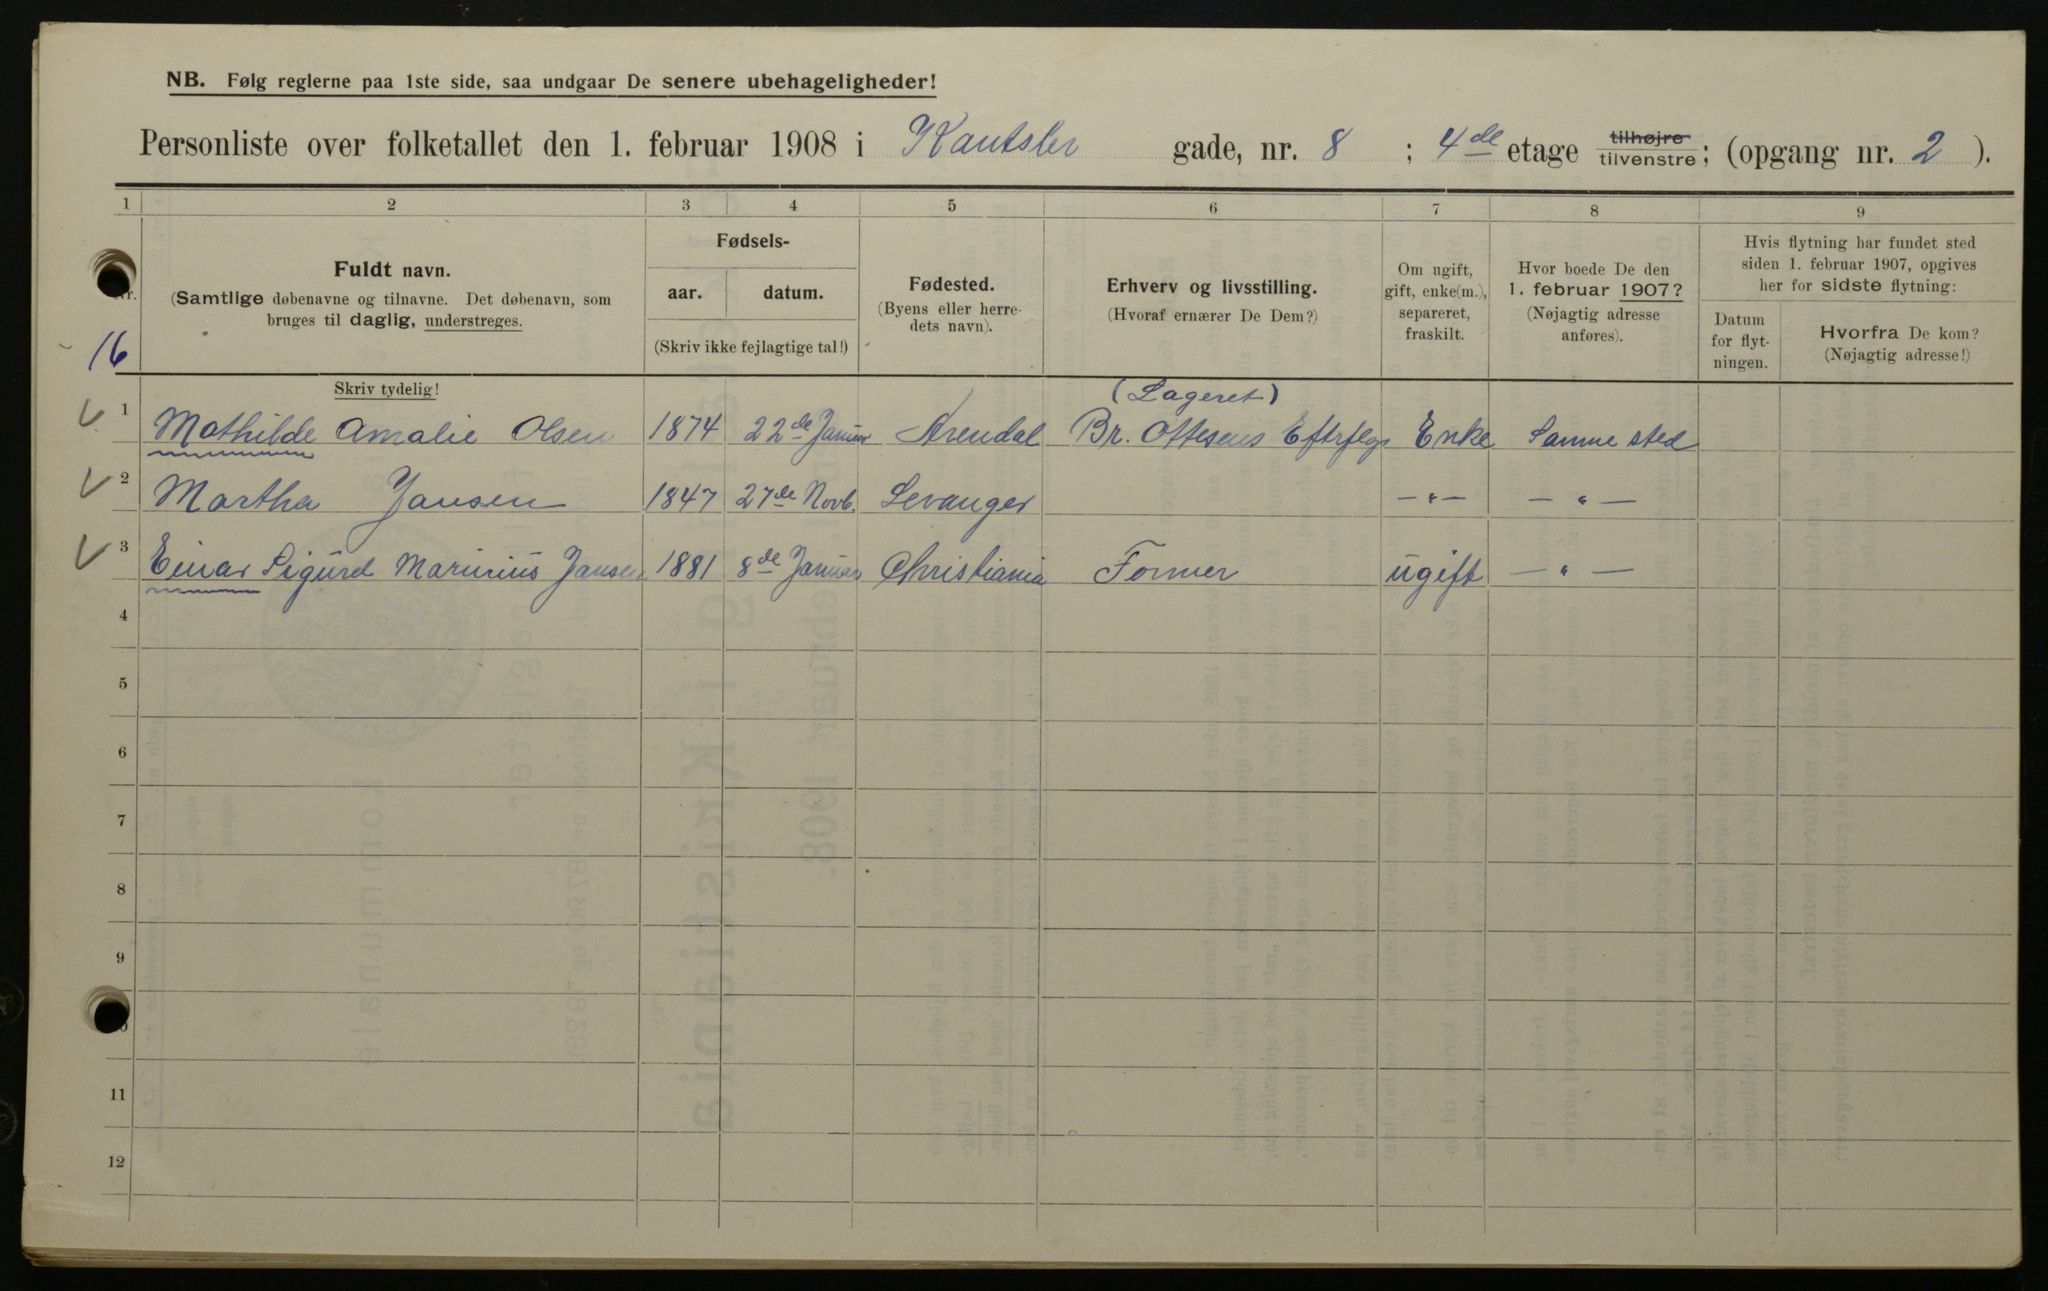 NB. Følg reglerne paa 1ste side, saa undgaar De senere ubehageligheder!
Personliste over folketallet den 1. februar 1908 i Kantsler gade, nr. 8 ; 4de etage tilhøjre tilvenstre; (opgang nr. 2 ).
1 2 3 4 5 6 7 8 9
Nr.
16
Fuldt navn.
(Samtlige døbenavne og tilnavne. Det døbenavn, som
bruges til daglig, understreges.
Fødsels-
aar. datum.
(Skriv ikke fejlagtige tal!)
Fødested.
(Byens eller herre-
dets navn).
Erhverv og livsstilling.
(Hvoraf ernærer De Dem?)
Om ugift,
gift, enke(m.),
separeret,
fraskilt.
Hvor boede De den
1. februar 1907?
(Nøjagtig adresse
anføres).
Hvis flytning har fundet sted
siden 1. februar 1907, opgives
her for sidste flytning:
Datum
for flyt-
ningen.
Hvorfra De kom?
(Nøjagtig adresse!)
Skriv tydelig!
(Lageret)
1 Mathilde Amalie Olsen 1874 22de Januar Arendal Br. Ottesens Eftrflgr Enke Samme sted
2 Martha Jansen 1847 27de Novb. Levanger — " — — " —
3 Einar Sigurd Marinius Jansen 1881 8de Januar Christiania Former ugift — " —
4
5
6
7
8
9
11
12